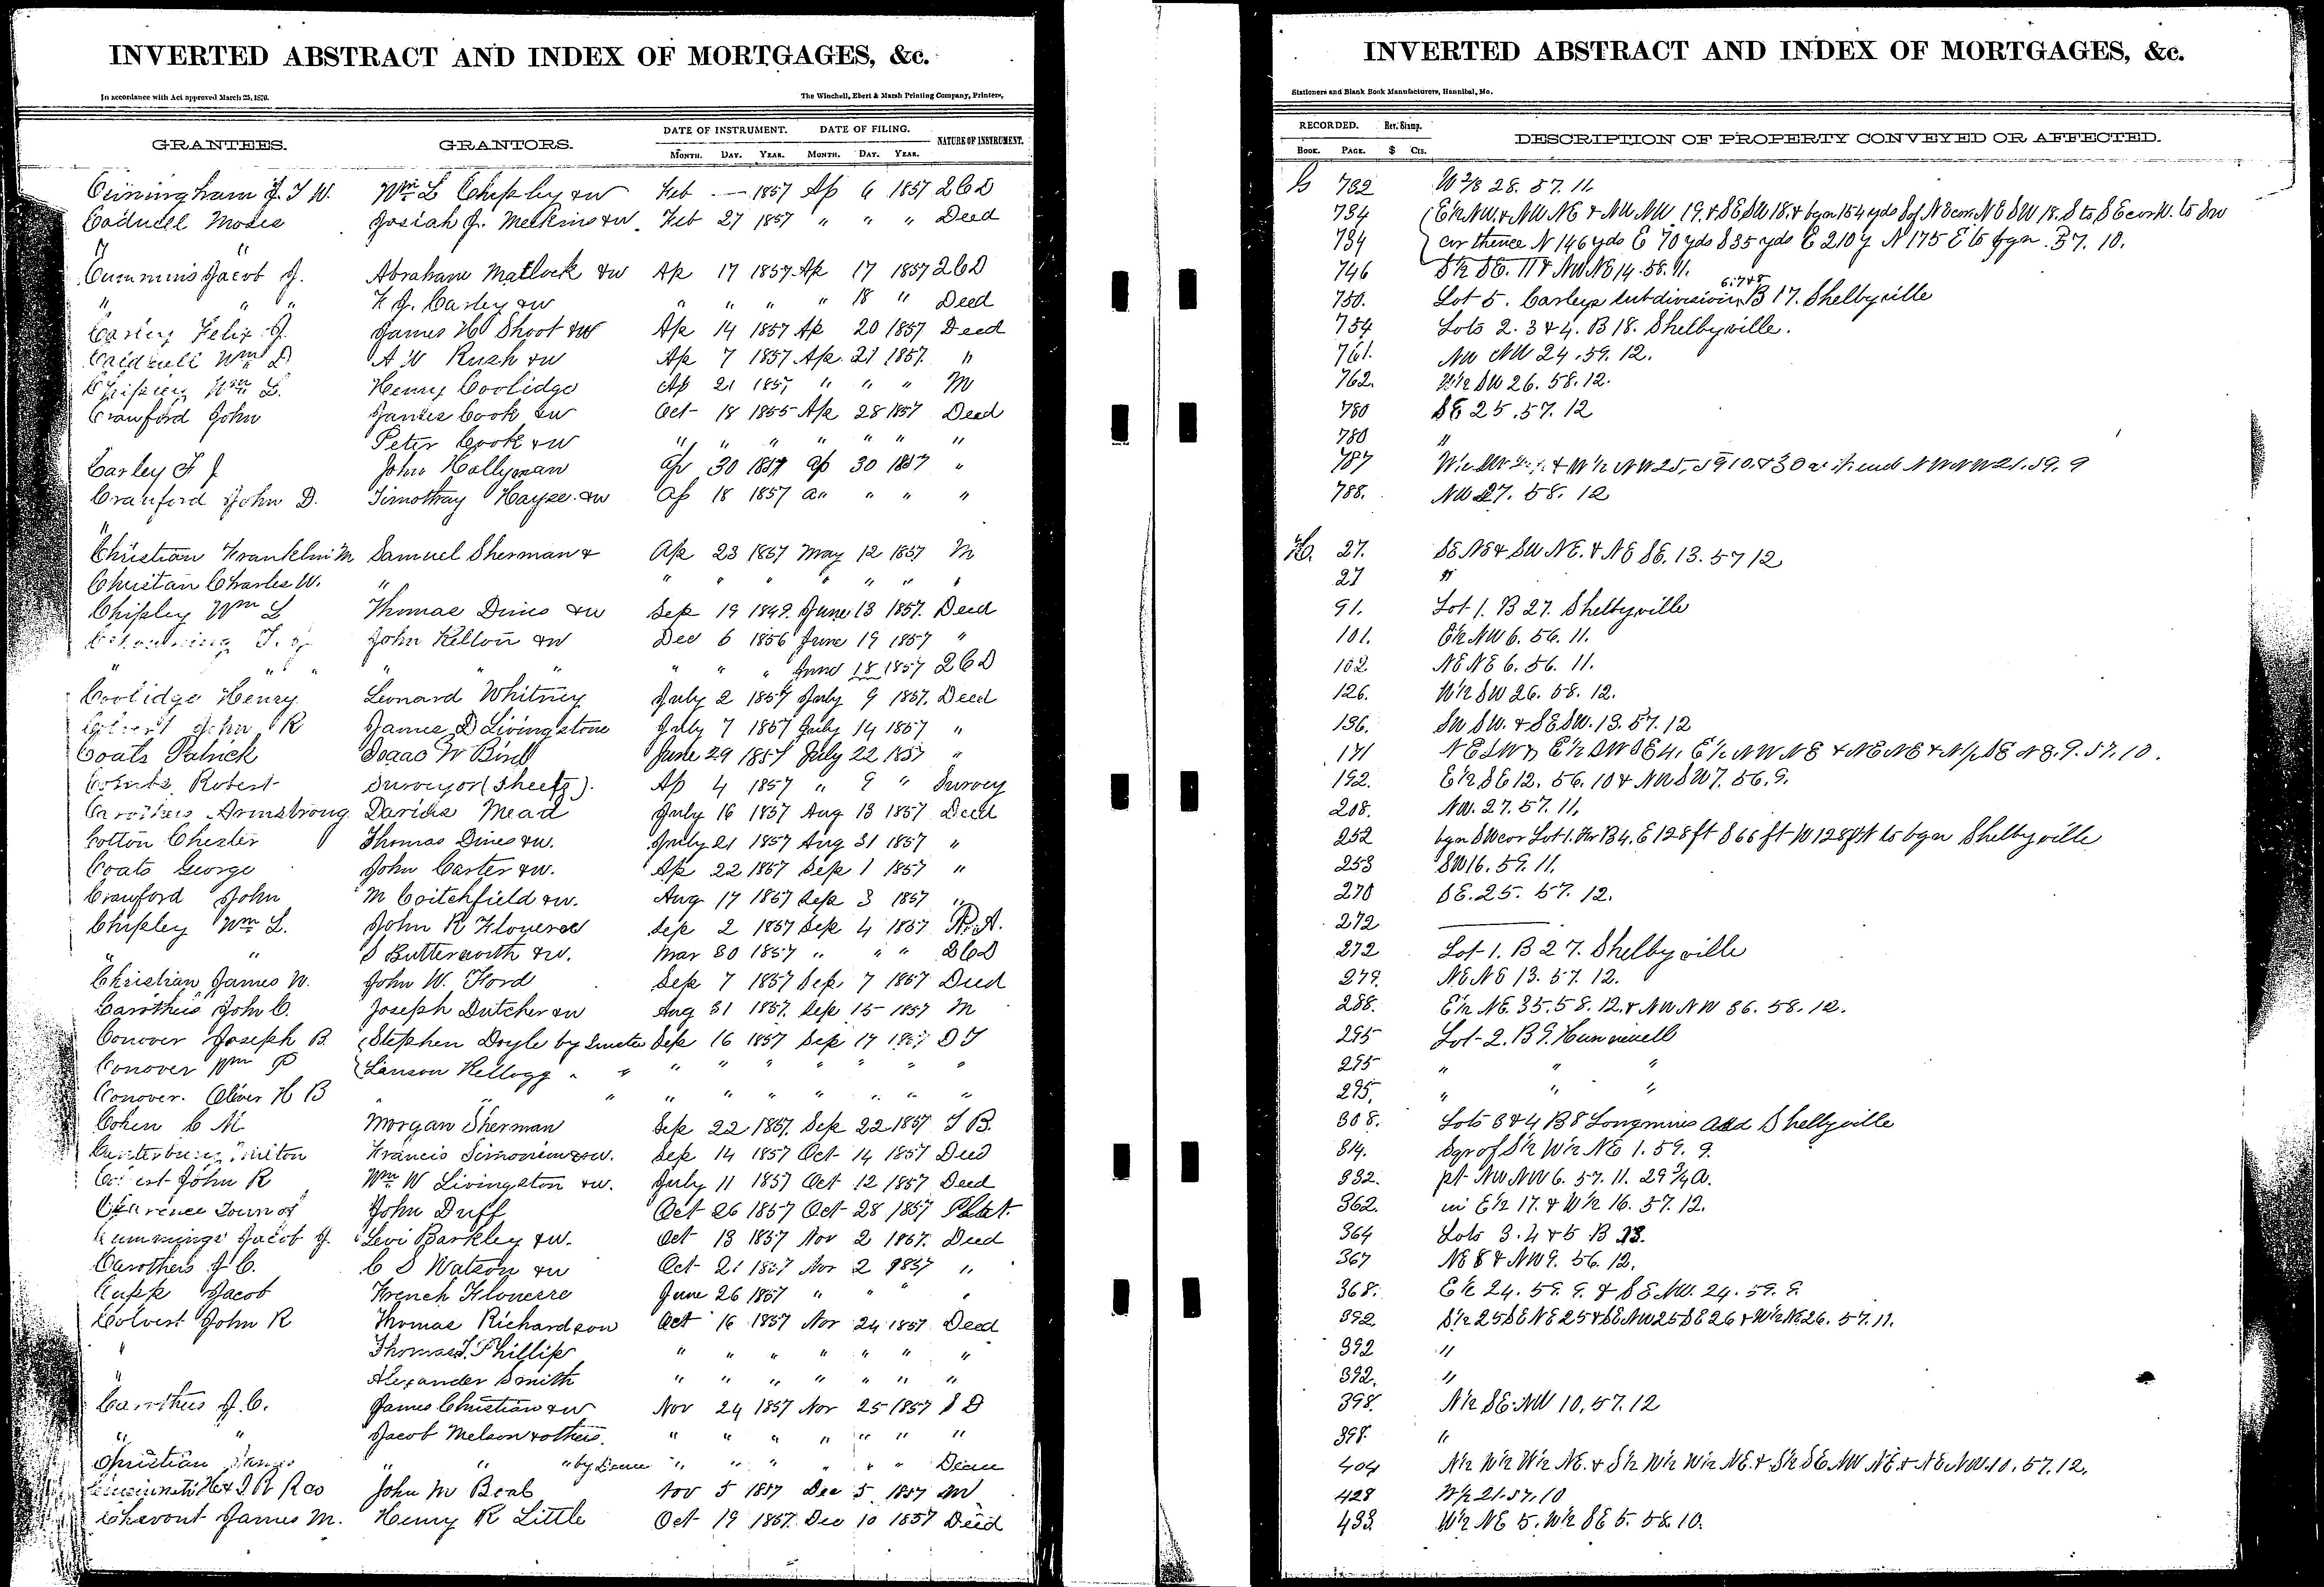 INVERTED ABSTRACT AND INDEX OF MORTGAGES, &c.
In accordance with Act approved March 25, 1870. The Winchell, Ebert & Marsh Printing Company, Printers,
GRANTEES. GRANTORS. DATE OF INSTRUMENT. DATE OF FILING. NATURE OF INSTRUMENT.
MONTH. DAY. YEAR. MONTH. DAY. YEAR.
Cuningham J. T W. Wm L Chipley & w Feb — 1857 Ap 6 1857 2CD
Caduell Moses Josiah J. Meekins & w Feb 27 1857 " " " Deed
" "
Cummins Jacob J. Abraham Matlock & w Ap 17 1857 Ap 17 1857 2CD
" " " F. J. Carley & w " " " " 18 " Deed
Carley Felix J. James H Shoot & w Ap 14 1857 Ap 20 1857 Deed
Caldwell Wm D A W Rush & w Ap 7 1857 Ap. 21 1857. "
Chipley Wm L. Henry Coolidge Ap 21 1857 " " " M
Crawford John James Cook & w Oct 18 1855 Ap 28 1857 Deed
Peter Cook & w " " " " " " "
Carley F J John Hollyman Ap 30 1857 Ap 30 1857 "
Crauford John D. Timothay Hayse & w Ap 18 1857 " " " "
"
Christian Franklin M Samuel Sherman & Ap 23 1857 May 12 1857 M
Christan Charles W. " " " " " " " "
Chipley Wm L Thomas Dines & w Sep 19 1849. June 13 1857. Deed
T. J John Kelton & w Dec 6 1856 June 19 1857 "
" " " " " " " " " June 18 1857 2CD
Coolidge Henry Leonard Whitney July 2 1857 July 9 1857. Deed
Colvert John R James D Livingstone July 7 1857 July 14 1857 "
Coats Patrick Isaac W Bird June 29 1857 July 22 1857 "
Robert Surveyor (Sheetz). Ap 4 1857 " 9 " Survey
Carothers Armstrong Darius Mead July 16 1857 Aug 13 1857 Deed
Cotton Chester Thomas Dines & w. July 21 1857 Aug 31 1857 "
Coats George John Carter & w. Ap 22 1857 Sep 1 1857 "
Crawford John M Critchfield & w. Aug 17 1857 Sep 3 1857 "
Chipley Wm L. John R Floweree Sep 2 1857 Sep 4 1857 P. A.
" " S Butterworth & w. Mar 30 1857 " " " 2CD
Christian James W. John W. Ford Sep 7 1857 Sep 7 1857 Deed
Carothers John C. Joseph Dutcher & w Aug 31 1857. Sep 15 1857 M
Conover Joseph B. Stephen Doyle by Trustee Sep 16 1857 Sep 17 1857 D T
Conover Wm P Lanson Kellogg " " " " " " " " "
Conover. Oliver H B " " " " " " " " " "
Cohen C M Morgan Sherman Sep 22 1857. Sep 22 1857 T B.
Canterbury Milton Francis Simonin & w. Sep 14 1857 Oct 14 1857 Deed
John R Wm W Livingston & w. July 11 1857 Oct 12 1857 Deed
Clarence Town of John Duff Oct 26 1857 Oct 28 1857 Plat.
Cummings Jacob J. Levi Barkley & w. Oct 13 1857 Nov 2 1857. Deed
Carothers J C. C S Watson & w Oct 21 1857 Nov 2 1857 "
Cupp Jacob French Floweree June 26 1857 " " " "
Colvert John R Thomas Richardson Oct 16 1857 Nov 24 1857 Deed
" Thomas J. Phillips " " " " " " "
" Alexander Smith " " " " " " "
Carothers J. C. James Christian & w Nov 24 1857 Nov 25 1857 S D
" " Jacob Melson & others. " " " " " " "
Christian James " " " by Decree " " " " " " Decree
H & J R R Co John M Beal Nov 5 1857 Dec 5 1857 M
Chevont James M. Henry R Little Oct 19 1857 Dec 10 1857 Deed
INVERTED ABSTRACT AND INDEX OF MORTGAGES, &c.
Stationers and Blank Book Manufacturers, Hannibal, Mo.
RECORDED. Rev. Stamp. DESCRIPTION OF PROPERTY CONVEYED OR AFFECTED.
BOOK. PAGE. $ Cts.
G 732 W 2/3 28. 57. 11.
734 E½ NW. & NW NE & NW NW 19. & SE SW 18. & bgn 154 yds S of NE cor NE SW 18. S to SE cor W. to SW
734 cor thence N 146 yds E 70 yds S 35 yds E 210 y N 175 E to bgn. 57. 10.
746 S½ SE. 11 & NW NE 14. 58. 11.
750. Lot 5. 6. 7 & 8 Carleys Subdivision B 17. Shelbyville
754 Lots 2. 3 & 4. B 18. Shelbyville.
761. NW NW 24. 59. 12.
762. W½ SW 26. 58. 12.
780 SE 25. 57. 12
780 "
787 & W½ NW 25, 59 10. & 30 NW NW 21. 59. 9
788. NW 27. 58. 12
H. 27. SE NE & SW NE. & NE SE. 13. 57 12
27 "
91. Lot 1. B 27. Shelbyville
101. E½ NW 6. 56. 11.
102. NE NE 6. 56. 11.
126. W½ SW 26. 58. 12.
136. SW SW. & SE SW. 13. 57. 12
171 NE SW & E½ SW SE 4, E½ NW NE & NE NE & N½ SE NE. 9. 57. 10.
192. E½ SE 12. 56. 10 & NW SW 7. 56. 9.
208. NW. 27. 57. 11.
252 bgn SW cor Lot 1. B 4. E 128 ft S 66 ft W 128 ft to bgn Shelbyville
253 SW 16. 59. 11.
270 SE. 25. 57. 12.
272 ———
272 Lot 1. B 27. Shelbyville
279. NE NE 13. 57. 12.
288. E½ NE. 35. 58. 12. & NW NW 36. 58. 12.
295 Lot 2. B 9. Hunnewell
295 " " "
295, " " "
308. Lots 3 & 4 B 8 Longmires Add Shelbyville
314. S½ W½ NE 1. 59. 9.
332. pt NW NW 6. 57. 11. 29 3/4 A.
362. in E½ 17. & W½ 16. 57. 12.
364 Lots 3. 4 & 5 B 13.
367 NE 8 & NW 9. 56. 12.
368. E½ 24. 59. 9. & SE NW. 24. 59. 9.
392 S½ 25 SE NE 25 & SE NW 25 SE 26 & W½ NE 26. 57. 11.
392 "
392. "
398. N½ SE NW 10, 57. 12
398. "
404 N½ W½ W½ NE. & S½ W½ W½ NE. & S½ SE NW NE. & NE NW. 10, 57. 12.
428 W½ 21. 57. 10
433. W½ NE 5. W½ SE 5. 58. 10.